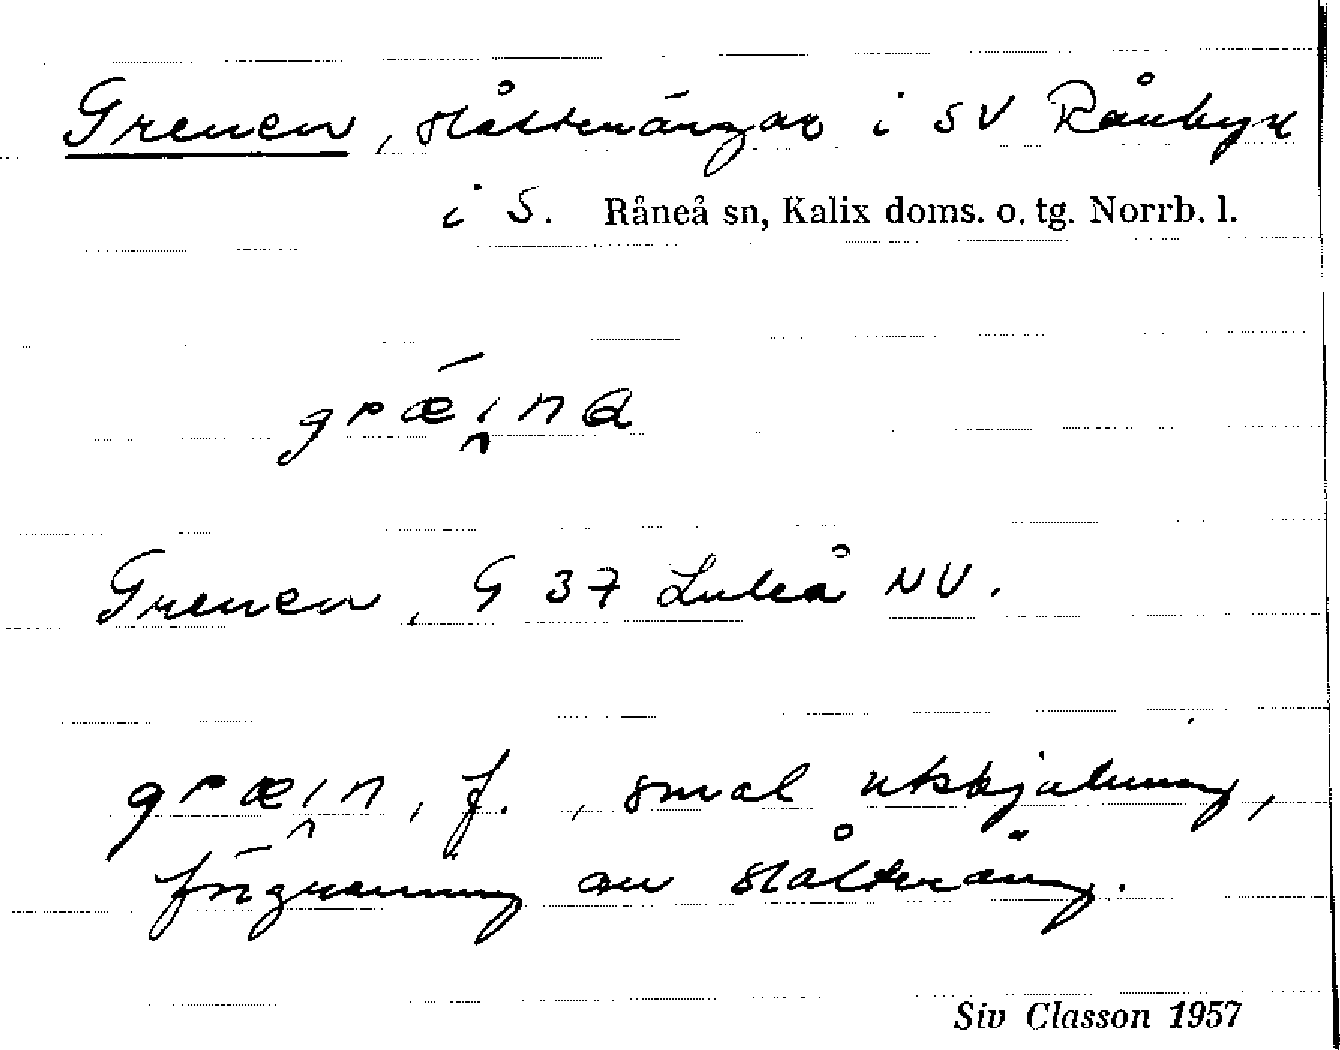 Grenen, slåtterängar i SV Rånbyn
i S. Råneå sn, Kalix doms. o. tg. Norrb. l.
grǣi̯na
Grenen, G 37 Luleå NV.
græi̯n, f., smal utskjutning,
förgrening av slåtteräng.
Siv Classon 1957